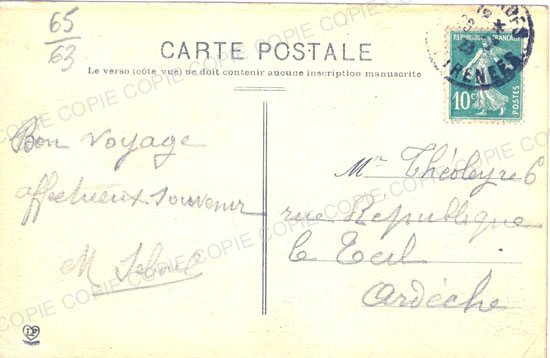 65
63
CARTE POSTALE
Le verso (côté vue) ne doit contenir aucune inscription manuscrite
REPUBLIQUE FRANÇAISE
10c
POSTES
Bon voyage
affectueux souvenir
M
Mr Théoleyre 6
rue République
le Teil
Ardèche
COPIE COPIE COPIE COPIE COPIE